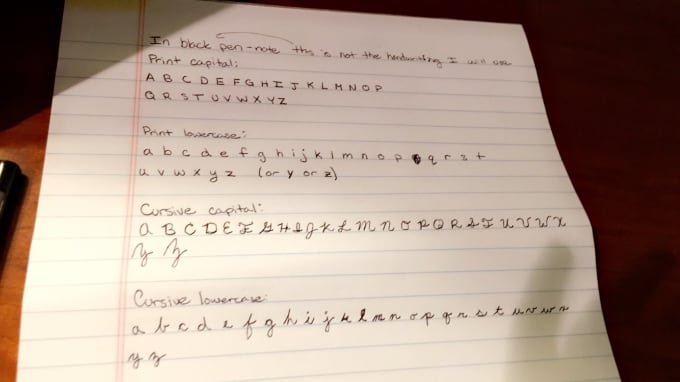 In black pen - note this is not the handwriting I will use
Print capital:
A B C D E F G H I J K L M N O P
Q R S T U V W X Y Z
Print lowercase:
a b c d e f g h i j k l m n o p q r s t
u v w x y z (or y or z)
Cursive capital:
a B C D E F G H I J K L M N O P Q R S T U V W X
Y Z
Cursive lowercase:
a b c d e f g h i j k l m n o p q r s t u v w x
y z